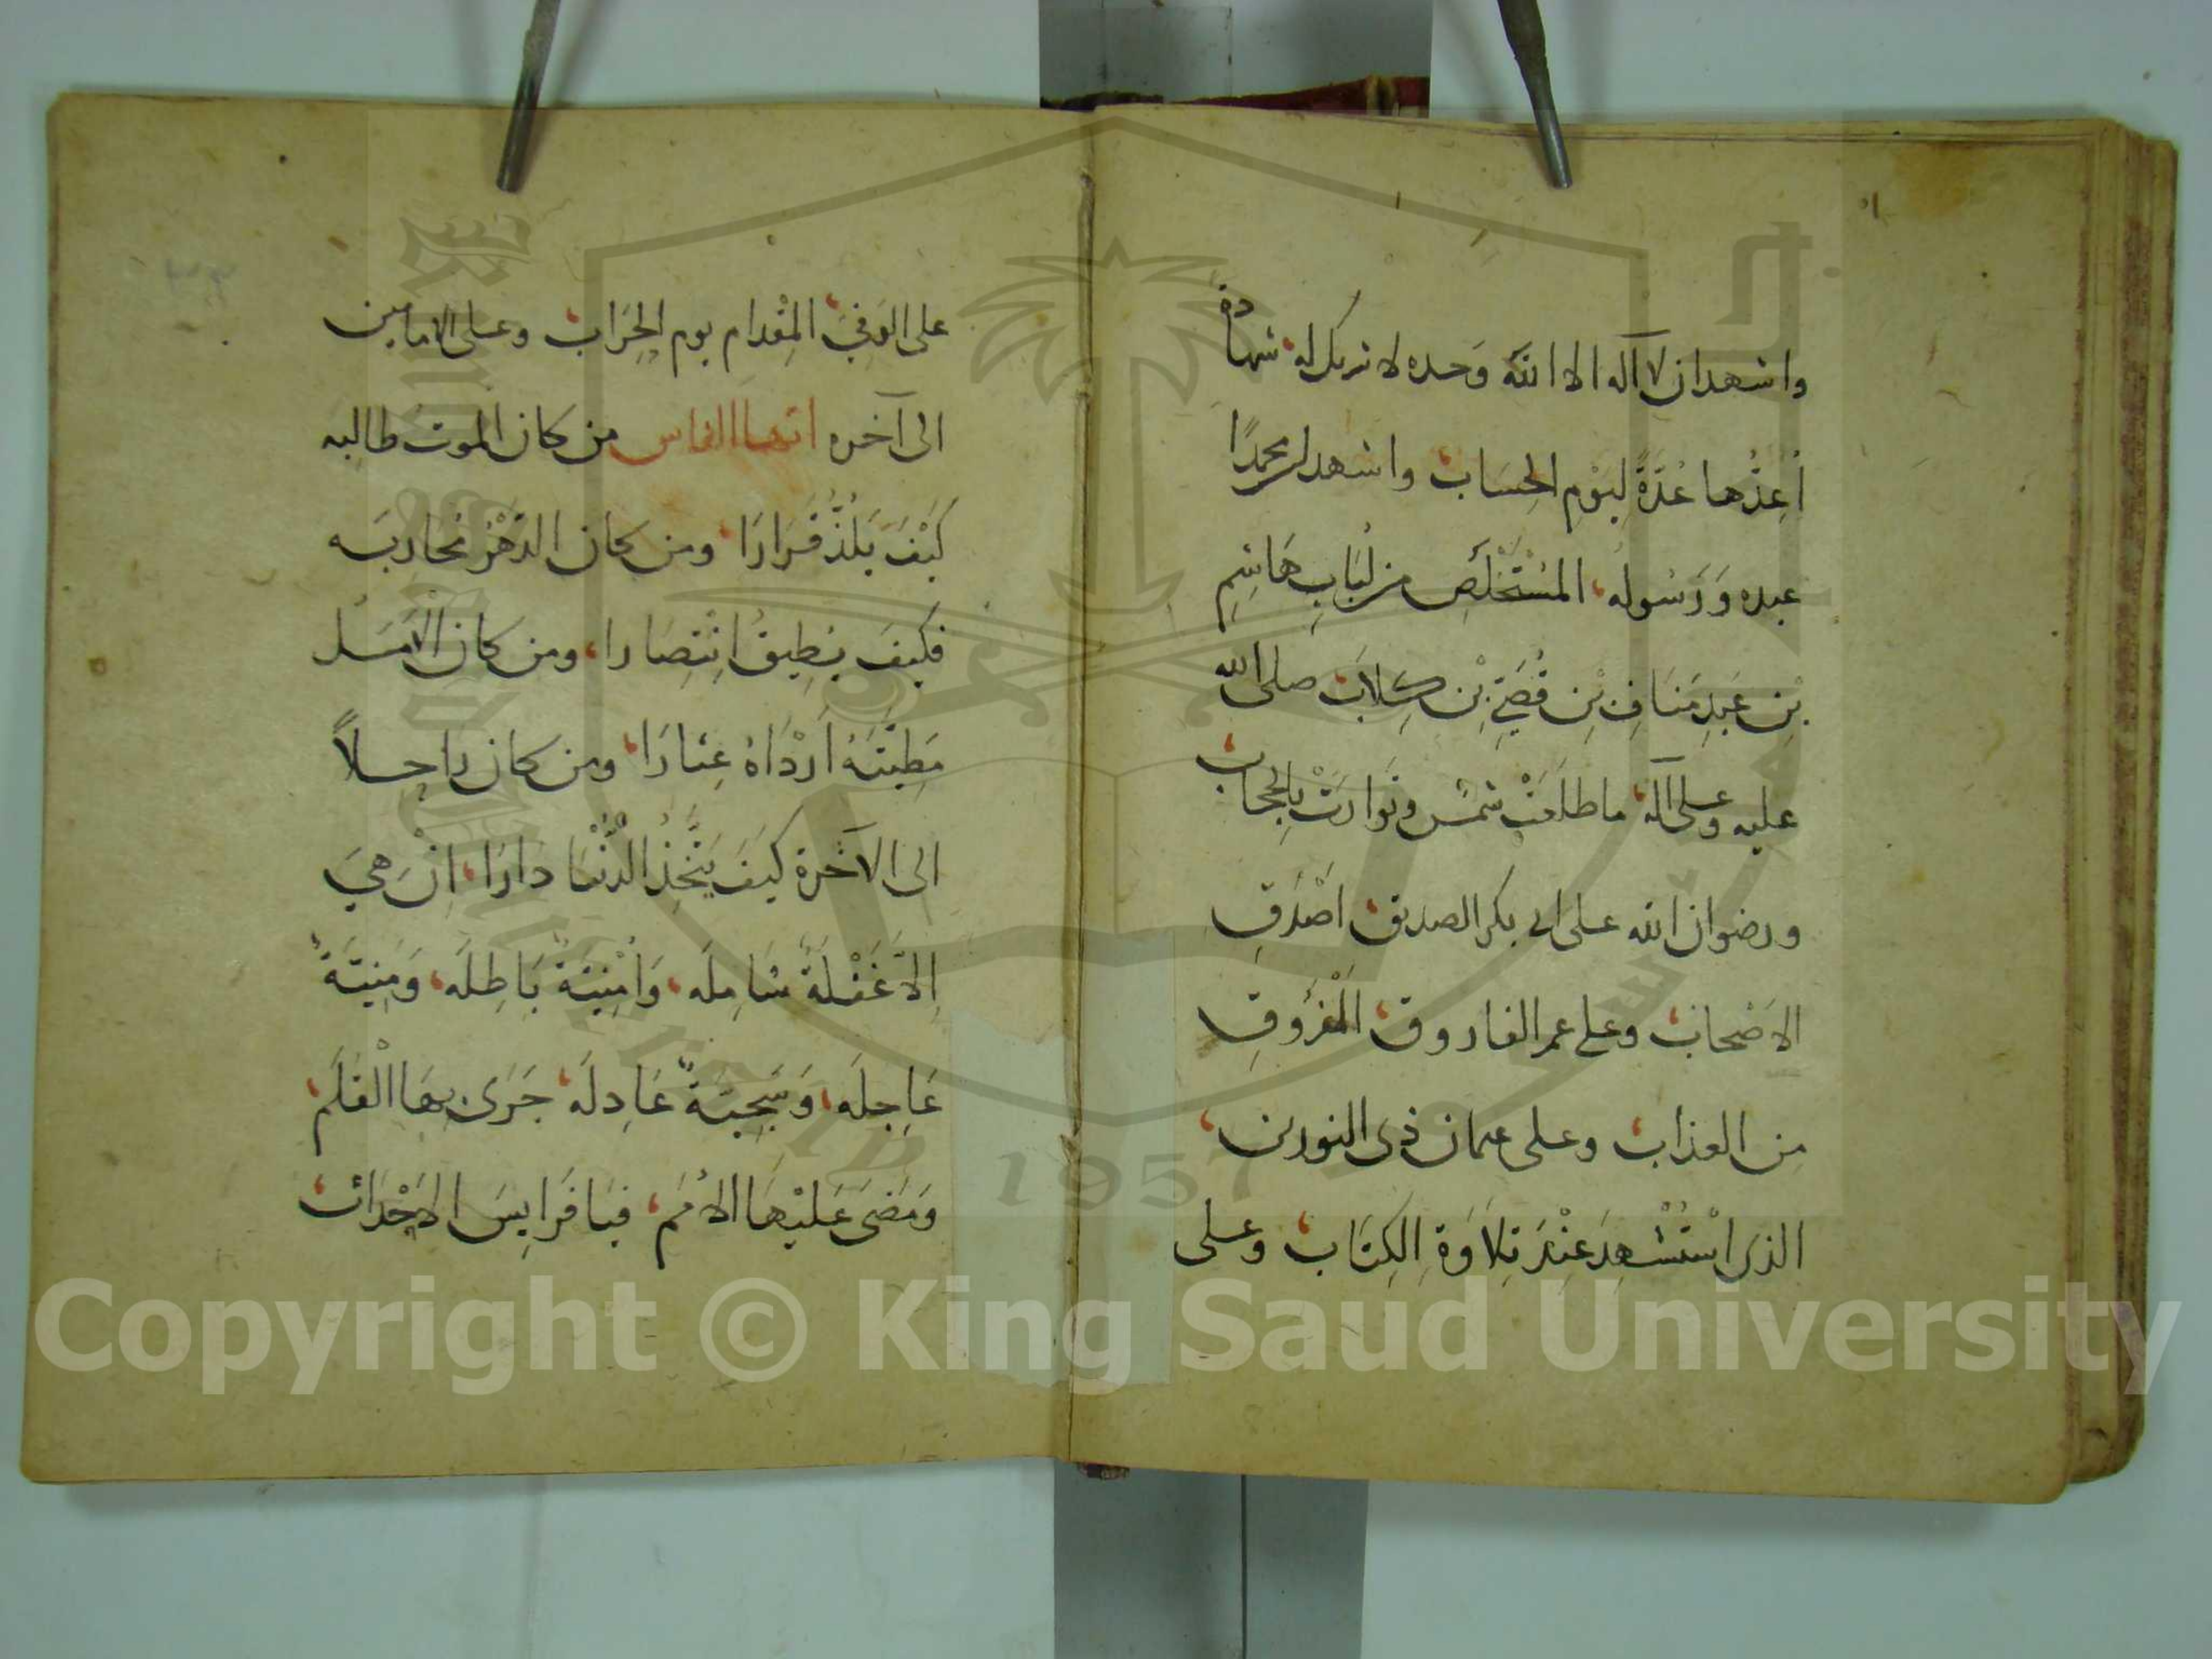 واشهد ان لا آله الا الله وَحده لا شريك له شهادة
أُعِدُّها عُدَّةً لِيَوْمِ الحِسَاب واشهد ان محمدًا
عبده وَرَسُوله المُسْتَخْلَصِ من لُبَابِ هَاشِمِ
بْنِ عَبدِ مَنَافِ بْنِ قُصَيِّ بْنِ كِلاَب صلى الله
عليه وعلى آله ما طلعَتْ شمس وتَوَارَتْ بِالحِجَاب
ورضوان الله على ابى بكر الصديق اَصْدَقِ
الاَصْحَاب وعلى عمر الفاروق المَفْرُوقِ
من العذاب وعلى عثمان ذى النورين
الذى اسْتُشْهِدَ عِنْدَ تِلاَوَةِ الكِتَاب وعلى
على الوَفِيّ المِقْدام يوم الحِرَاب وعلى الامامين
الى آخره ايّها الناس من كان الموت طالبه
كَيْفَ يَلَذُّ قَرَارَا ومن كان الدَّهْرُ مُحَارِبَه
فكيفَ يُطِيقُ اِنْتِصَارا ومن كان الاَمَلُ
مَطِيَّتَهُ اَرْدَاهُ عِثَارَا ومن كان راحِلاً
الى الآخرة كيفَ يَتَّخِذُ الدُّنْيَا دَارَا اِنْ هِيَ
اِلاَّ غَفْلَةٌ شَامِلَه وَاُمْنِيَّةٌ بَاطِلَه وَمَنِيَّةٌ
عَاجِلَه وَسَجِيَّةٌ عَادِلَه جَرَى بِهَا الْقَلَم
وَمَضَى عَلَيْهَا الاُمَم فيَا فَرَايِسَ الاَحْدَاث
Copyright © King Saud University
1957